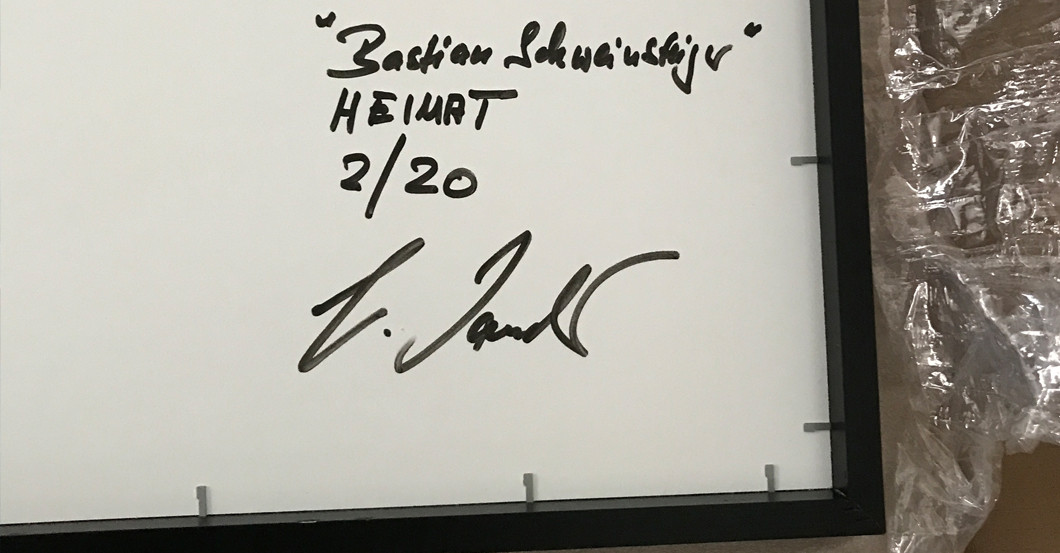 "Bastian Schweinsteiger"
HEIMAT
2/20